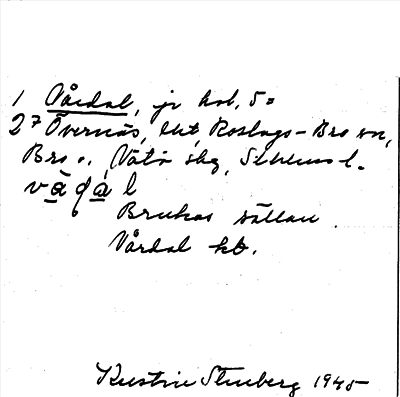 1 Vårdal, jr kol, S=
2⁷ Övernäs, lht, Roslags-Bro sn,
Bro o. Vätö skg, Sthlms l.
Brukas sällan.
Vårdal kb.
Kerstin Stenberg 1945